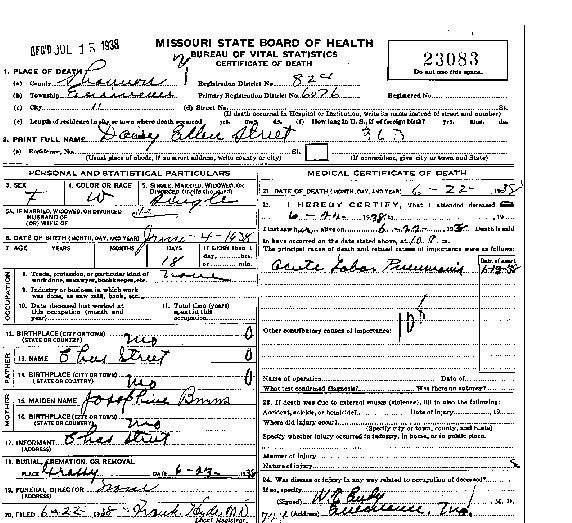 REC'D JUL 15 1938
MISSOURI STATE BOARD OF HEALTH
BUREAU OF VITAL STATISTICS
CERTIFICATE OF DEATH
23083
Do not use this space.
1. PLACE OF DEATH
(a) County Shannon Registration District No. 824
(b) Township Eminence Primary Registration District No. 6076 Registered No.
(c) City (d) Street No. St.
(If death occurred in Hospital or Institution, write its name instead of street and number)
(e) Length of residence in city or town where death occurred yrs. mos. ds. (f) How long in U.S., if of foreign birth? yrs. mos. ds.
2. PRINT FULL NAME Daisy Ellen Street 363
(a) Residence, No. St.
(Usual place of abode, if no street address, write county or city) (If nonresident, give city or town and State)
PERSONAL AND STATISTICAL PARTICULARS
3. SEX F
4. COLOR OR RACE W
5. SINGLE, MARRIED, WIDOWED, OR DIVORCED Single
5A. IF MARRIED, WIDOWED, OR DIVORCED
HUSBAND OF
(OR) WIFE OF
6. DATE OF BIRTH (MONTH, DAY, AND YEAR) June - 4 - 1938
7. AGE YEARS MONTHS DAYS If LESS than 1
18 day, hrs.
or min.
OCCUPATION
8. Trade, profession, or particular kind of work done, sawyer, bookkeeper, etc. none
9. Industry or business in which work was done, as saw mill, bank, etc.
10. Date deceased last worked at this occupation (month and year)
11. Total time (years) spent in this occupation
12. BIRTHPLACE (CITY OR TOWN)
(STATE OR COUNTRY) Mo
FATHER
13. NAME Chas Street
14. BIRTHPLACE (CITY OR TOWN)
(STATE OR COUNTRY) Mo
MOTHER
15. MAIDEN NAME Josephine
16. BIRTHPLACE (CITY OR TOWN)
(STATE OR COUNTRY) Mo
17. INFORMANT Chas Street
(ADDRESS)
18. BURIAL, CREMATION, OR REMOVAL
PLACE DATE 6-23- 1938
19. FUNERAL DIRECTOR none
(ADDRESS)
20. FILED 6-22 1938 Frank Hyde M.D.
Local Registrar
MEDICAL CERTIFICATE OF DEATH
21. DATE OF DEATH (MONTH, DAY, AND YEAR) 6-22- 1938
22. I HEREBY CERTIFY, That I attended deceased
I last saw alive on 6-22- 1938 Death is said
to have occurred on the date stated above, at m.
The principal cause of death and related causes of importance were as follows:
Date of onset
Acute Lobar Pneumonia 6-19-38
Other contributory causes of importance:
Name of operation Date of
What test confirmed diagnosis? Was there an autopsy?
23. If death was due to external causes (violence), fill in also the following:
Accident, suicide, or homicide? Date of injury , 19
Where did injury occur?
(Specify city or town, county, and State)
Specify whether injury occurred in industry, in home, or in public place.
Manner of injury
Nature of injury
24. Was disease or injury in any way related to occupation of deceased?
If so, specify
(Signed) M. D.
(Address) Eminence, Mo.